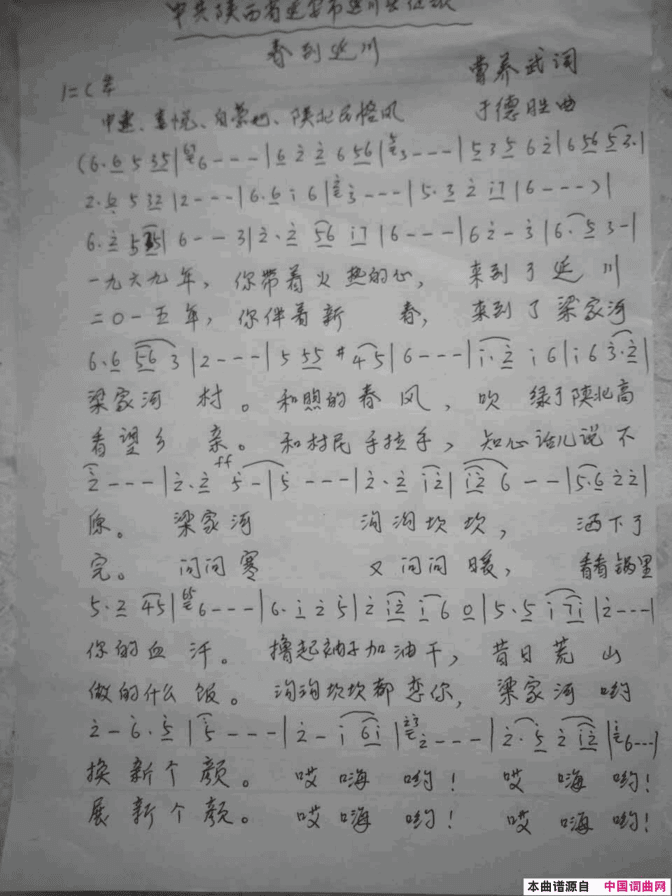 中共陕西省延安市延川县
春到延川
1=C
曹养武词
中速、喜悦、自豪地、陕北民格风
于德胜曲
(6·6 5 35|6---|6 2 2 6 56|3---|5 3 5 6 2|6 56 5 3·|
2·6 5 32|2---|6·6 i 6|3---|5·3 2 i7|6---)|
6·2 5 35|6--3|2·2 56 i7|6---|6 2-3|6·5 3-|
一九六九年，你带着火热的心，来到了延川
二〇一五年，你伴着新春，来到了梁家河
6·6 56 3|2---|5 55 #4 5|6---|i·2 i6|i 6 3·2|
梁家河村。和煦的春风，吹绿了陕北高
看望乡亲。和村民手拉手，知心话儿说不
2---|2·2 ff 5-|5---|2·2 i2|i2 6--|5·6 22|
原。梁家河沟沟坎坎，洒下了
完。问问寒又问问暖，看看锅里
5·2 45|6---|6·i 2 5|2 i2 i6 0|5·5 i7i|2---|
你的血汗。撸起袖子加油干，昔日荒山
做的什么饭。沟沟坎坎都恋你，梁家河哟
2-6·5|5---|2-i 6i|2---|2·5 2 i2|6---|
换新个颜。哎嗨哟！哎嗨哟！
展新个颜。哎嗨哟！哎嗨哟！
本曲谱源自 中国词曲网